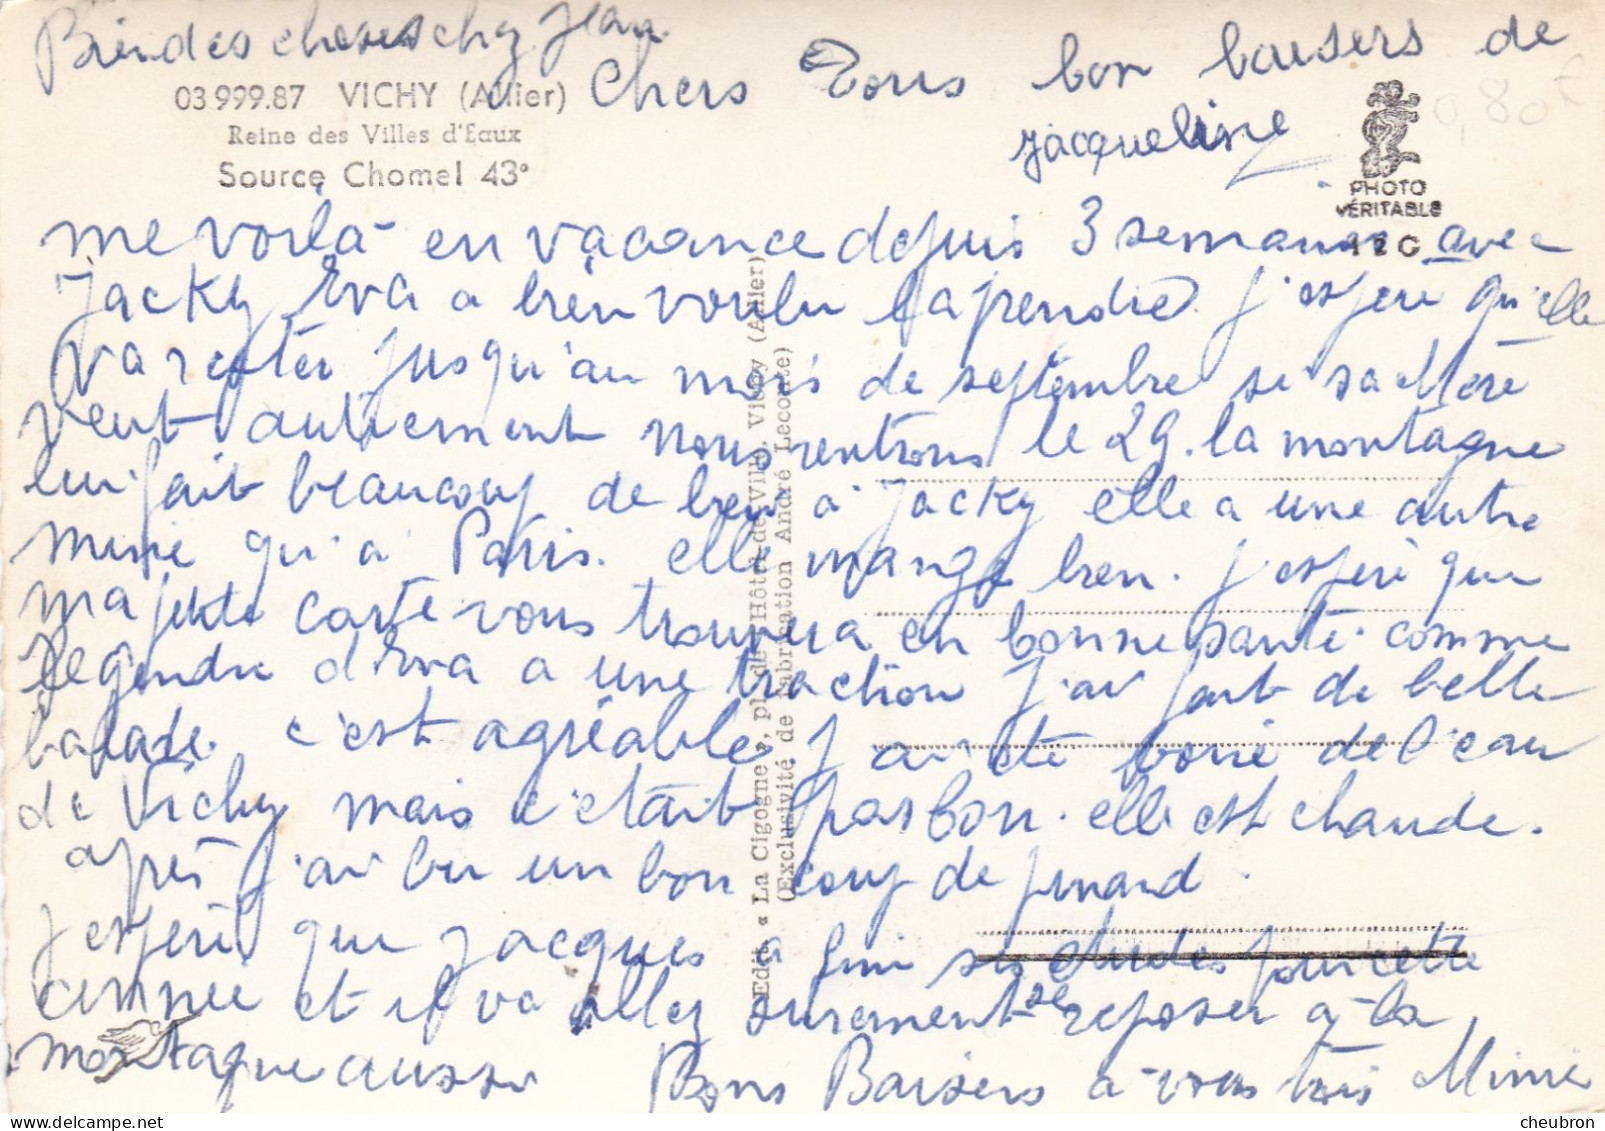 Bien des choses chez Jean
03.999.87 VICHY (Allier)
Reine des Villes d'Eaux
Source Chomel 43°
Chers Tous bon baisers de
Jacqueline
0,80 F
PHOTO
VÉRITABLE
me voilà en vacance depuis 3 semaines avec
Jacky Eva a bien voulu la prendre. j'espère qu'elle
va rester jusqu'au mois de septembre si sa mère
veut autrement nous rentrons le 29. la montagne
lui fait beaucoup de bien à Jacky elle a une autre
mine qu'à Paris. elle mange bien. j'espère que
ma petite carte vous trouvera en bonne santé. comme
le gendre d'Eva a une traction j'ai fait de belle
balade. c'est agréable j'ai été boire de l'eau
de Vichy mais c'était pas bon. elle est chaude.
après j'ai bu un bon coup de pinard.
j'espère que Jacques a fini ses études pour cette
année et il va allez surement se reposer à la
montagne aussi Bons Baisers à vous trois Mimi
Edit. « La Cigogne », pl. de l'Hôtel-de-Ville, Vichy (Allier)
(Exclusivité de fabrication André Leconte)
cheubron.com